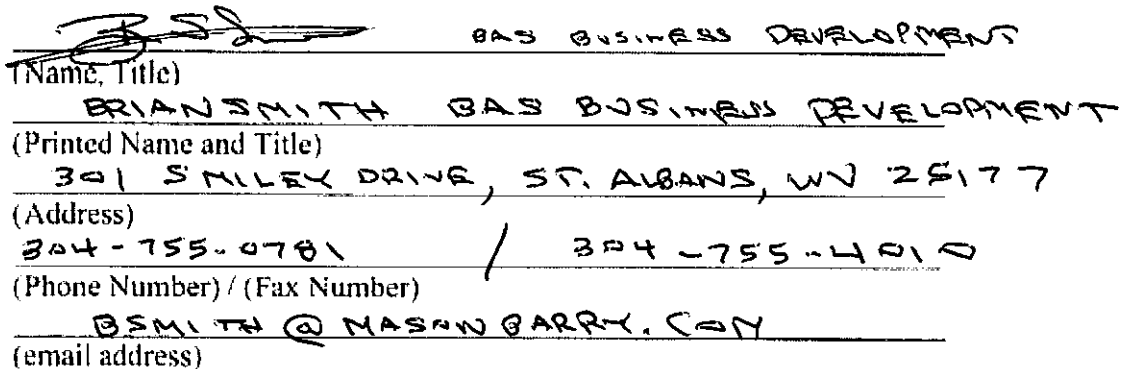 BAS BUSINESS DEVELOPMENT
(Name, Title)
BRIAN SMITH BAS BUSINESS DEVELOPMENT
(Printed Name and Title)
301 SMILEY DRIVE, ST. ALBANS, WV 25177
(Address)
304-755-0781 / 304-755-4010
(Phone Number) / (Fax Number)
BSMITH@MASONBARRY.COM
(email address)